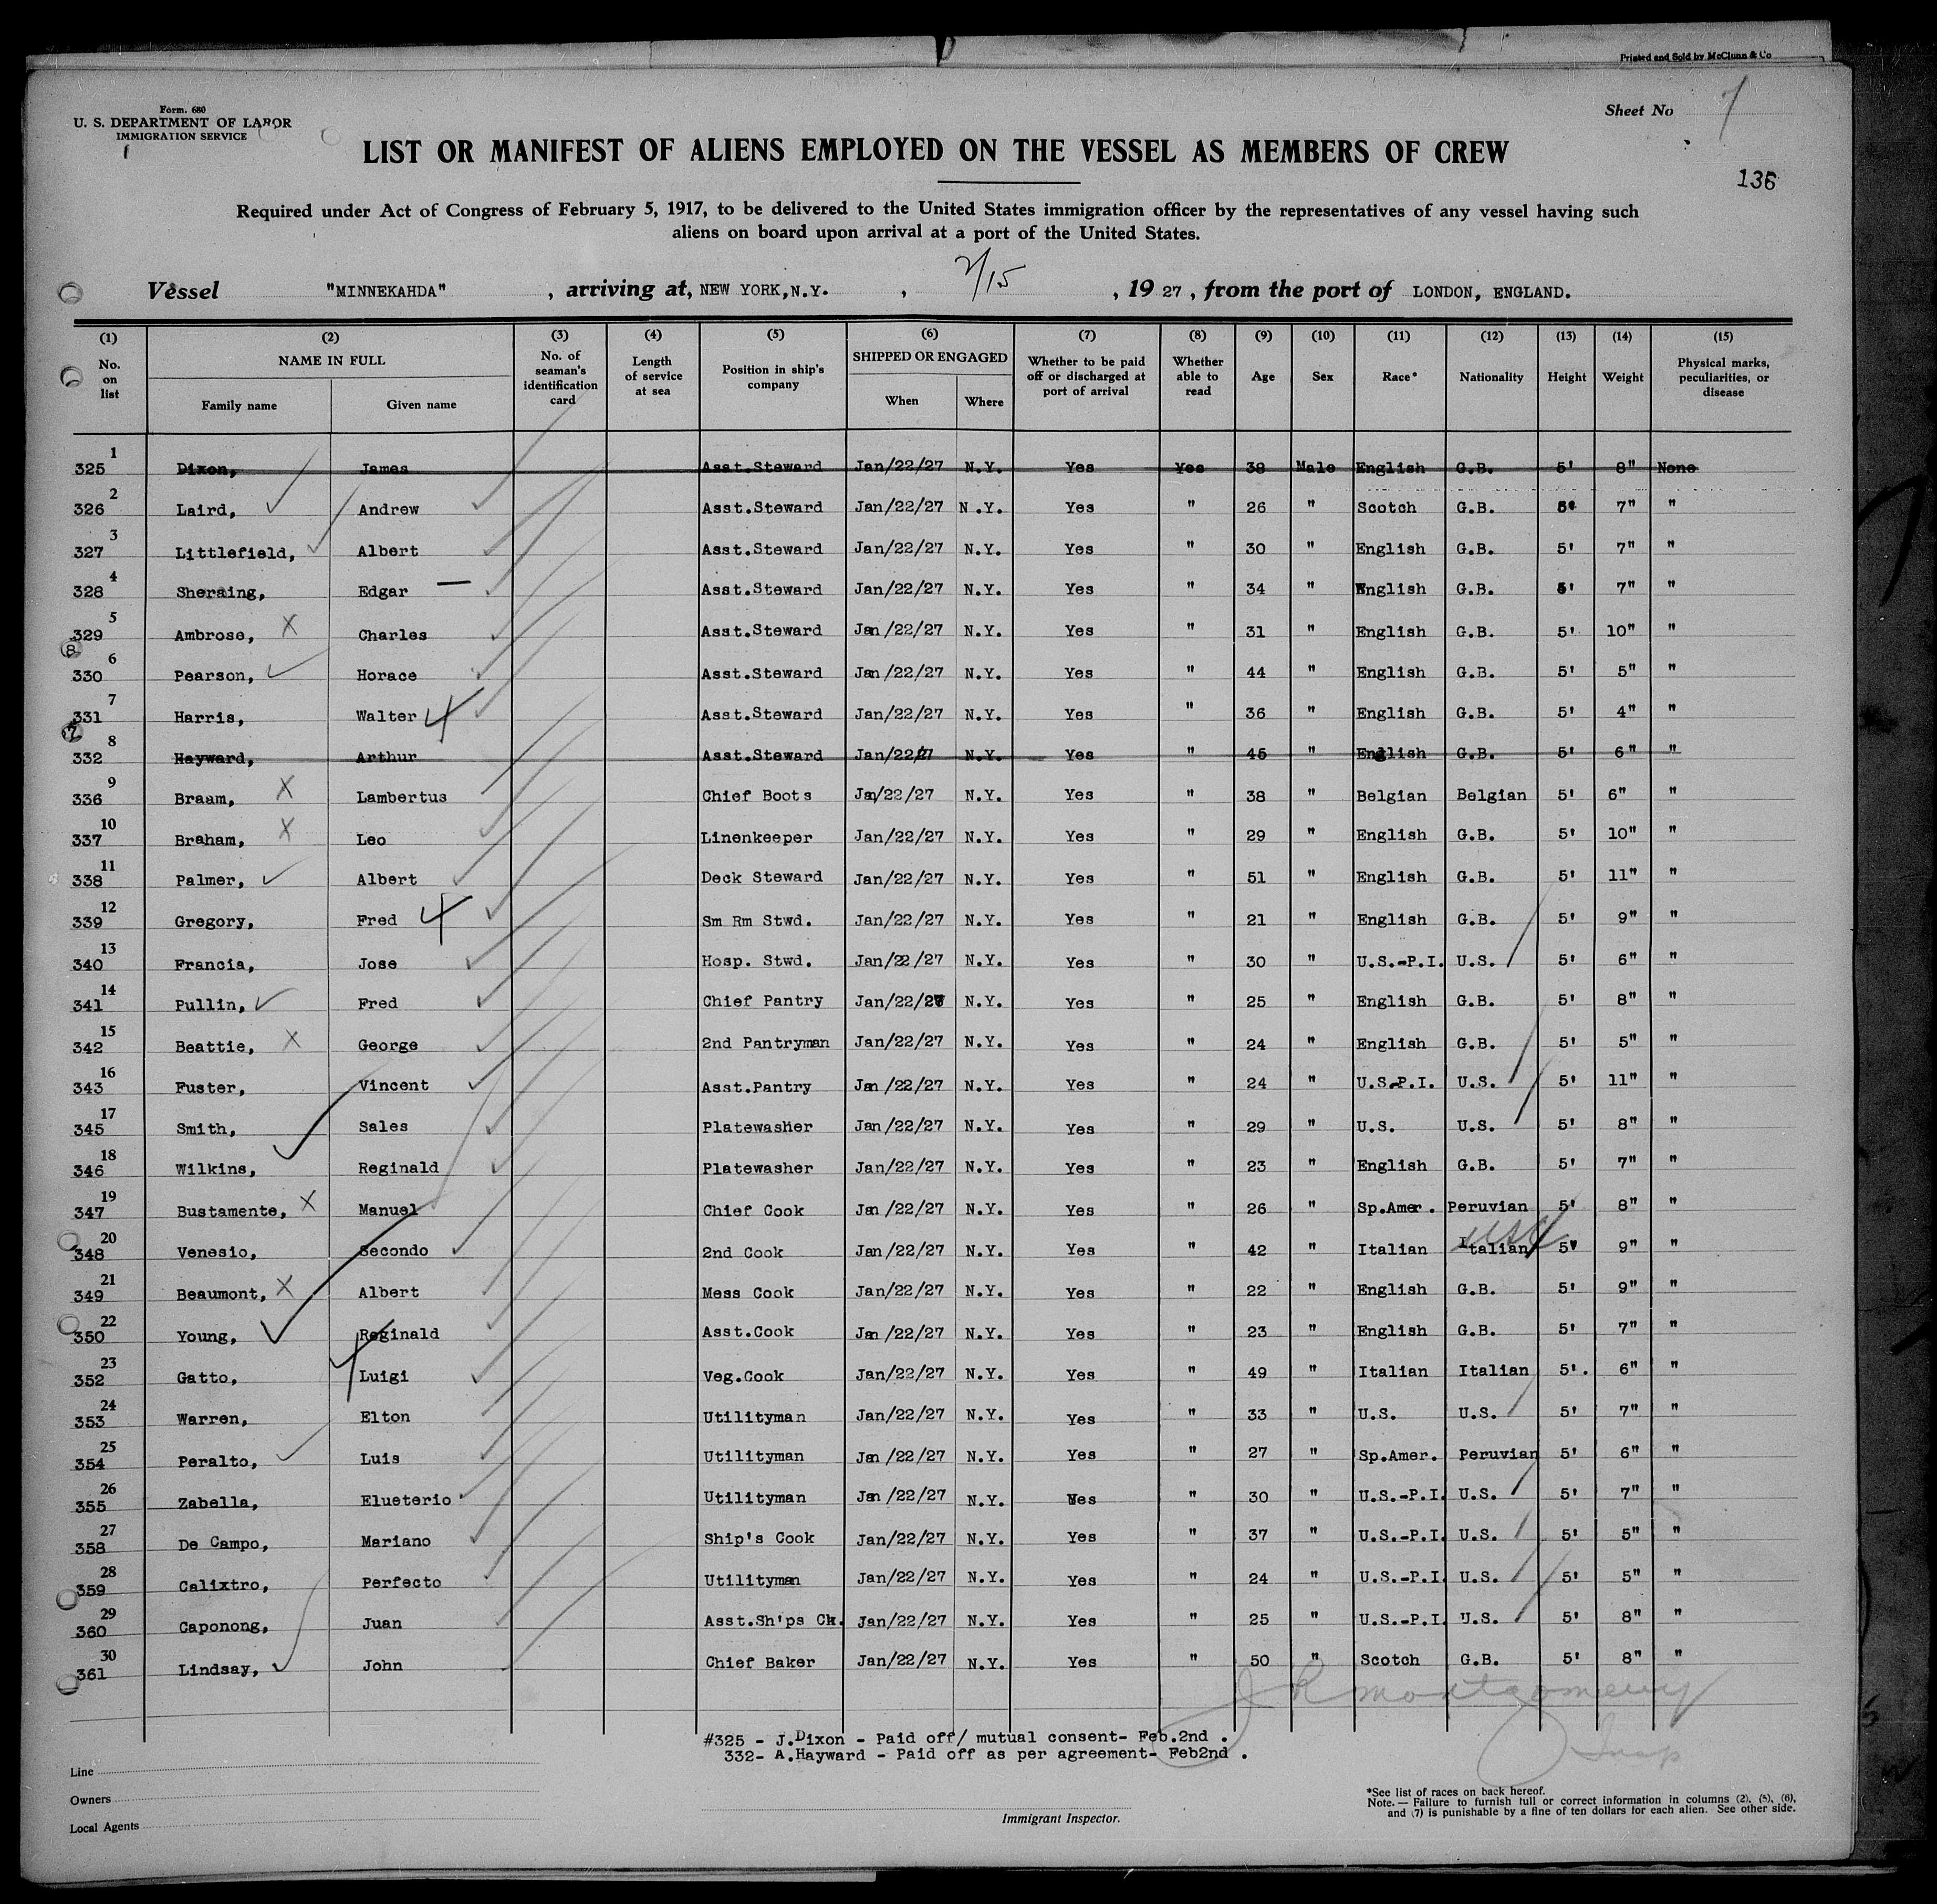 Printed and Sold by McClunn & Co
Form. 680
U. S. DEPARTMENT OF LABOR
IMMIGRATION SERVICE
Sheet No 7
LIST OR MANIFEST OF ALIENS EMPLOYED ON THE VESSEL AS MEMBERS OF CREW
136
Required under Act of Congress of February 5, 1917, to be delivered to the United States immigration officer by the representatives of any vessel having such
aliens on board upon arrival at a port of the United States.
Vessel "MINNEKAHDA" , arriving at, NEW YORK,N.Y. , 2/15 , 19 27 , from the port of LONDON, ENGLAND.
(1) (2) (3) (4) (5) (6) (7) (8) (9) (10) (11) (12) (13) (14) (15)
No. on list NAME IN FULL Family name Given name No. of seaman's identification card Length of service at sea Position in ship's company SHIPPED OR ENGAGED When Where Whether to be paid off or discharged at port of arrival Whether able to read Age Sex Race* Nationality Height Weight Physical marks, peculiarities, or disease
1 325 Dixon, James Asst.Steward Jan/22/27 N.Y. Yes Yes 38 Male English G.B. 5' 8" None
2 326 Laird, Andrew Asst.Steward Jan/22/27 N.Y. Yes " 26 " Scotch G.B. 5' 7" "
3 327 Littlefield, Albert Asst.Steward Jan/22/27 N.Y. Yes " 30 " English G.B. 5' 7" "
4 328 Sheraing, Edgar Asst.Steward Jan/22/27 N.Y. Yes " 34 " English G.B. 5' 7" "
5 329 Ambrose, X Charles Asst.Steward Jan/22/27 N.Y. Yes " 31 " English G.B. 5' 10" "
8
6 330 Pearson, Horace Asst.Steward Jan/22/27 N.Y. Yes " 44 " English G.B. 5' 5" "
7 331 Harris, Walter Asst.Steward Jan/22/27 N.Y. Yes " 36 " English G.B. 5' 4" "
7
8 332 Hayward, Arthur Asst.Steward Jan/22/27 N.Y. Yes " 45 " English G.B. 5' 6" "
9 336 Braam, X Lambertus Chief Boots Jan/22/27 N.Y. Yes " 38 " Belgian Belgian 5' 6" "
10 337 Braham, X Leo Linenkeeper Jan/22/27 N.Y. Yes " 29 " English G.B. 5' 10" "
11 338 Palmer, Albert Deck Steward Jan/22/27 N.Y. Yes " 51 " English G.B. 5' 11" "
12 339 Gregory, Fred Sm Rm Stwd. Jan/22/27 N.Y. Yes " 21 " English G.B. 5' 9" "
13 340 Francia, Jose Hosp. Stwd. Jan/22/27 N.Y. Yes " 30 " U.S.-P.I. U.S. 5' 6" "
14 341 Pullin, Fred Chief Pantry Jan/22/27 N.Y. Yes " 25 " English G.B. 5' 8" "
15 342 Beattie, X George 2nd Pantryman Jan/22/27 N.Y. Yes " 24 " English G.B. 5' 5" "
16 343 Fuster, Vincent Asst.Pantry Jan/22/27 N.Y. Yes " 24 " U.S-P.I. U.S. 5' 11" "
17 345 Smith, Sales Platewasher Jan/22/27 N.Y. Yes " 29 " U.S. U.S. 5' 8" "
18 346 Wilkins, Reginald Platewasher Jan/22/27 N.Y. Yes " 23 " English G.B. 5' 7" "
19 347 Bustamente, X Manuel Chief Cook Jan/22/27 N.Y. Yes " 26 " Sp.Amer. Peruvian 5' 8" "
20 348 Venesio, Secondo 2nd Cook Jan/22/27 N.Y. Yes " 42 " Italian Italian USA 5' 9" "
21 349 Beaumont, X Albert Mess Cook Jan/22/27 N.Y. Yes " 22 " English G.B. 5' 9" "
22 350 Young, Reginald Asst.Cook Jan/22/27 N.Y. Yes " 23 " English G.B. 5' 7" "
23 352 Gatto, Luigi Veg.Cook Jan/22/27 N.Y. Yes " 49 " Italian Italian 5'. 6" "
24 353 Warren, Elton Utilityman Jan/22/27 N.Y. Yes " 33 " U.S. U.S. 5' 7" "
25 354 Peralto, Luis Utilityman Jan/22/27 N.Y. Yes " 27 " Sp.Amer. Peruvian 5' 6" "
26 355 Zabella, Elueterio Utilityman Jan/22/27 N.Y. Yes " 30 " U.S.-P.I. U.S. 5' 7" "
27 358 De Campo, Mariano Ship's Cook Jan/22/27 N.Y. Yes " 37 " U.S.-P.I. U.S. 5' 5" "
28 359 Calixtro, Perfecto Utilityman Jan/22/27 N.Y. Yes " 24 " U.S.-P.I. U.S. 5' 5" "
29 360 Caponong, Juan Asst.Sh'ps Ck. Jan/22/27 N.Y. Yes " 25 " U.S.-P.I. U.S. 5' 8" "
30 361 Lindsay, John Chief Baker Jan/22/27 N.Y. Yes " 50 " Scotch G.B. 5' 8" "
J R Montgomery
Insp
#325 - J.Dixon - Paid off/ mutual consent- Feb.2nd .
332- A.Hayward - Paid off as per agreement- Feb2nd .
Line
Owners
Local Agents
Immigrant Inspector.
*See list of races on back hereof.
Note.— Failure to furnish full or correct information in columns (2), (5), (6),
and (7) is punishable by a fine of ten dollars for each alien. See other side.